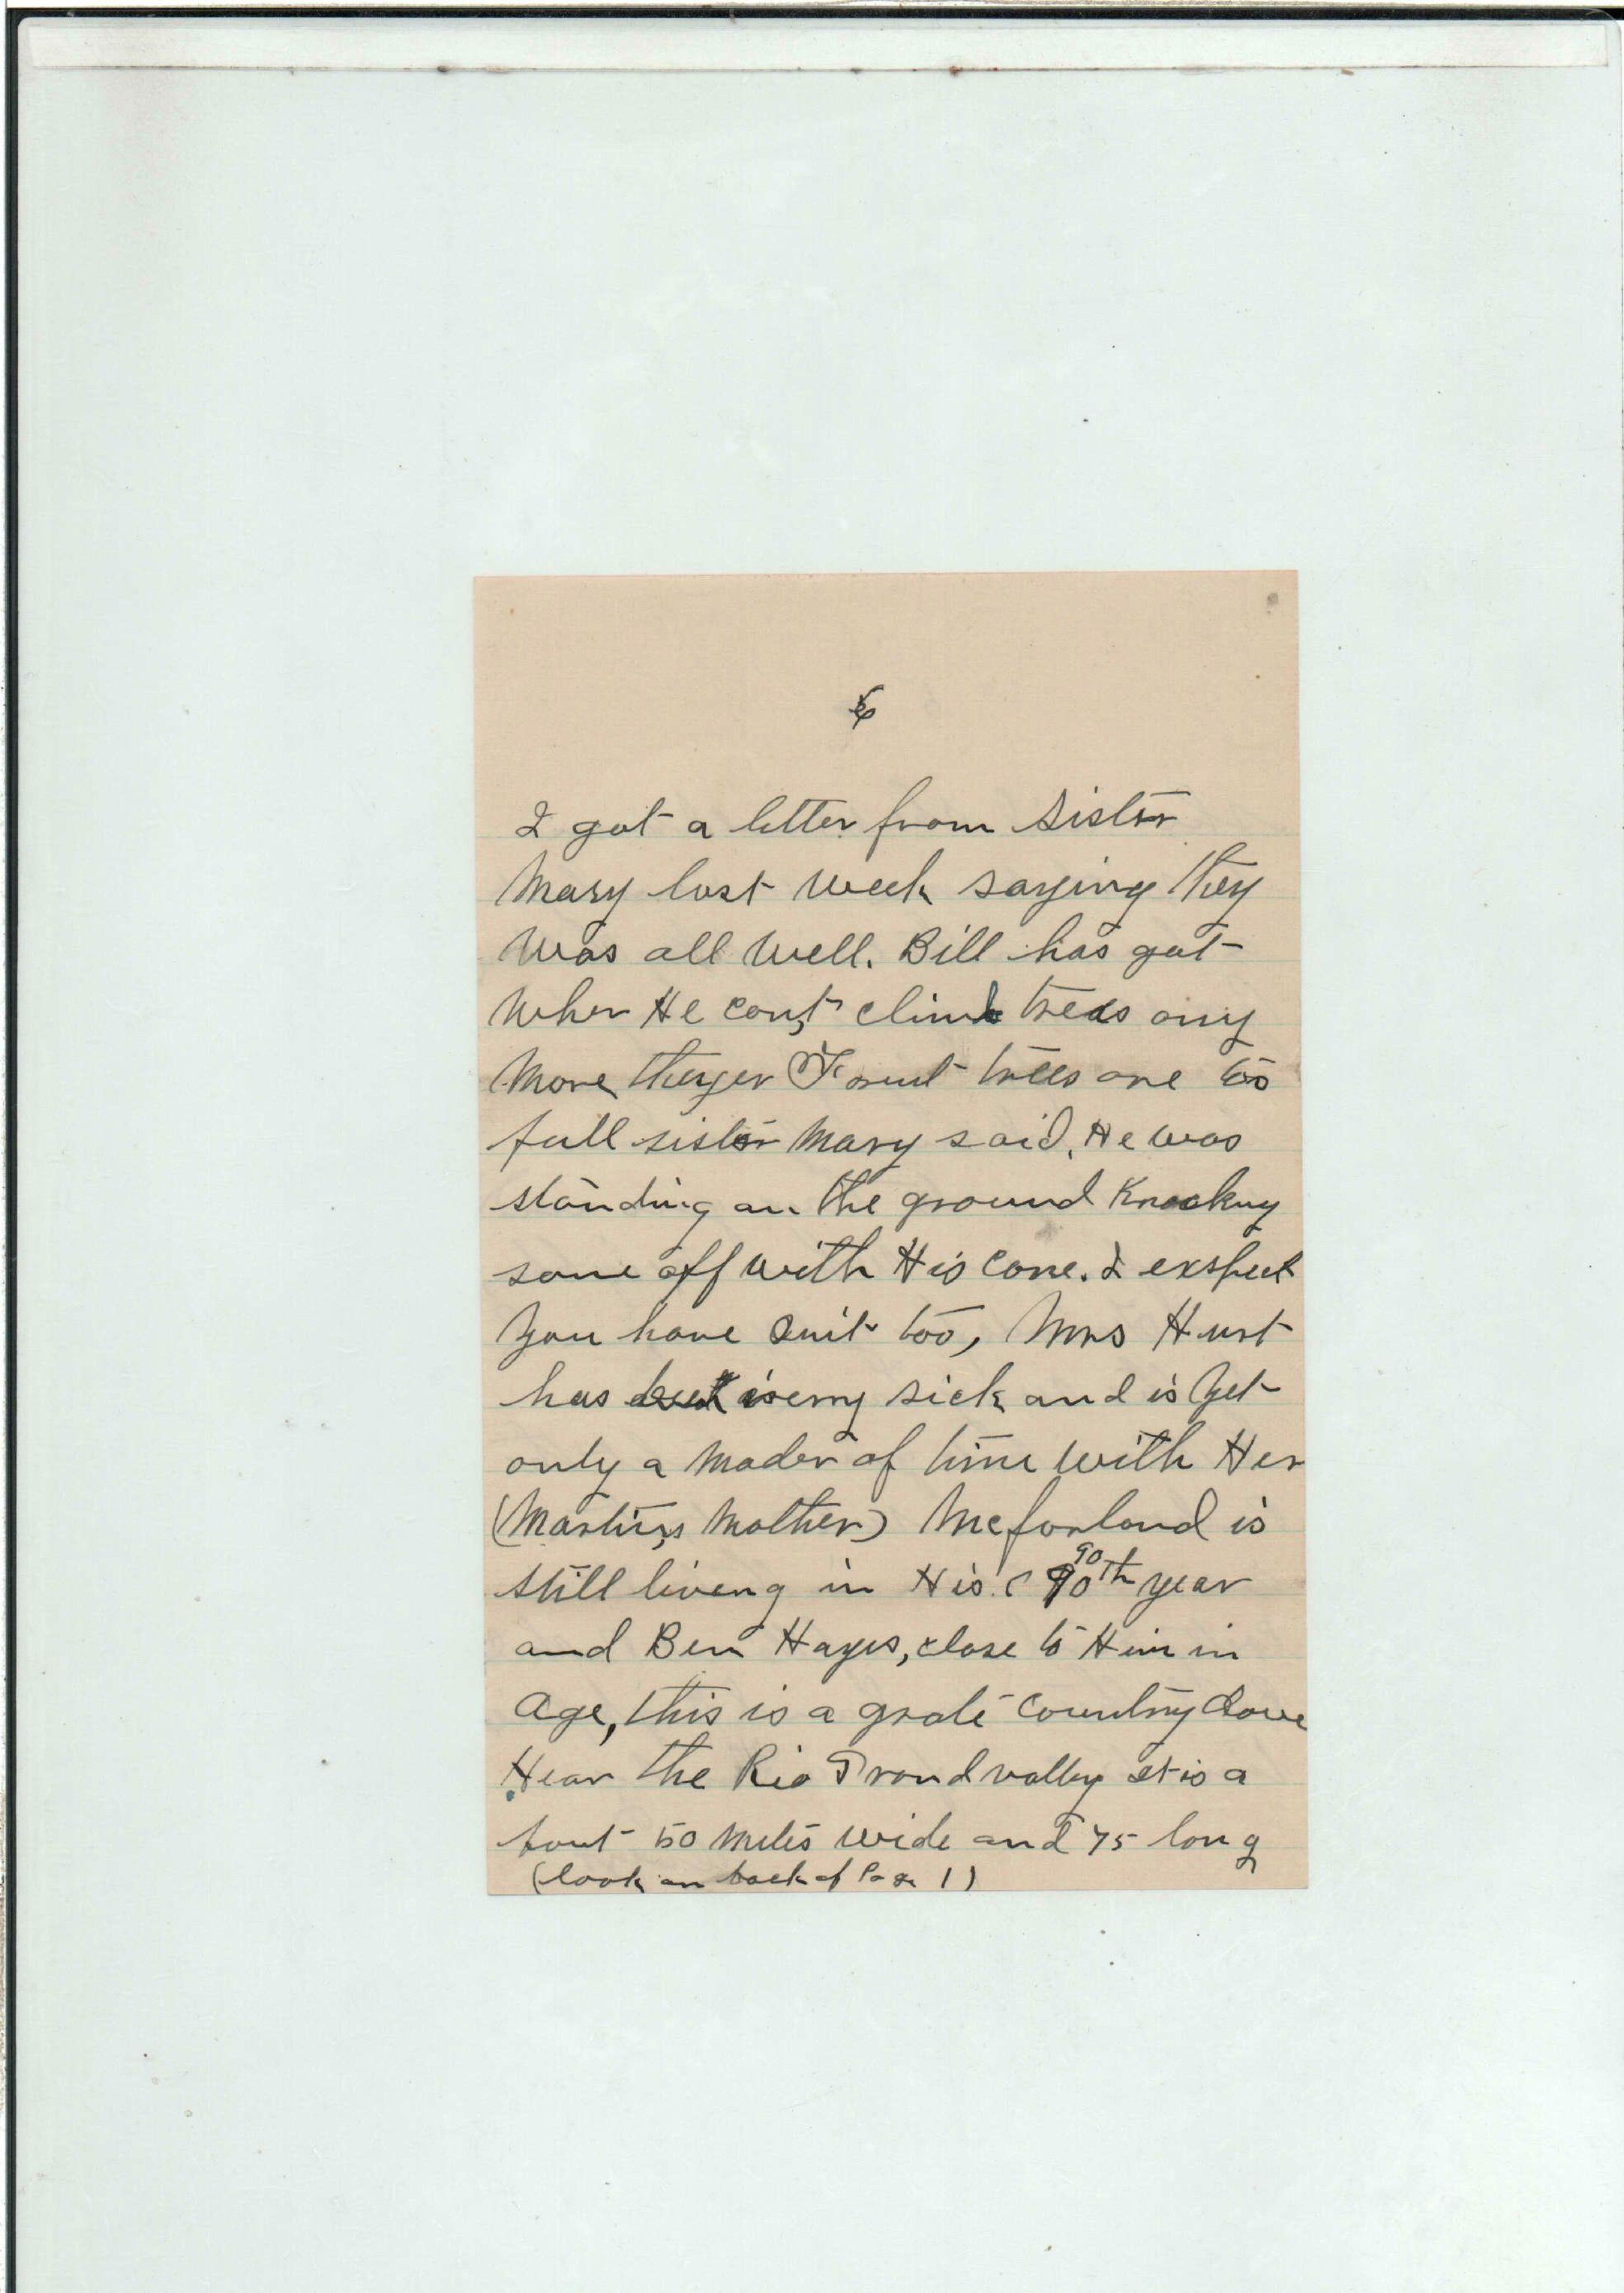 6
I got a letter from Sister
Mary last week saying they
was all well. Bill has got
wher He can,t climb trees any
more ther Frut trees are too
full sister Mary said, He was
standing on the ground Knocking
some off with His cane. I exspect
you have Quit too, Mrs Hurt
has been very sick and is yet
only a mader of time with Her
(Martin,s Mother) Mcfarland is
still liveng in His (90th 90 year
and Ben Hays, close to Him in
age, this is a grate country down
Hear the Rio Grand valley it is a
bout 50 miles wide and 75 long
(look on back of Page 1)